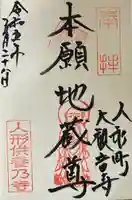 奉拝
人形町
大観音寺
本願地蔵尊
令和五年
二月二十八日
人形供養乃寺